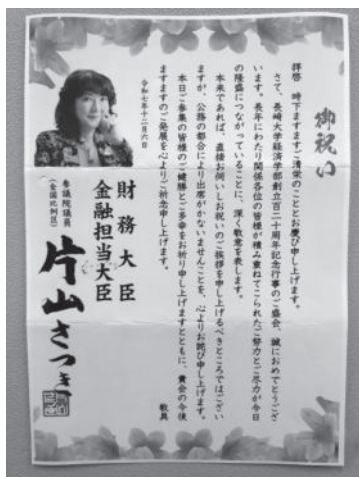 御祝い
拝啓 時下ますますご清栄のこととお慶び申し上げます。
さて、長崎大学経済学部創立百二十周年記念行事のご盛会、誠におめでとうござ
います。長年にわたり関係各位の皆様が積み重ねてこられたご努力とご尽力が今日
の隆盛につながっていることに、深く敬意を表します。
本来であれば、直接お伺いしお祝いのご挨拶を申し上げるべきところではござい
ますが、公務の都合により出席がかないませんことを、心よりお詫び申し上げます。
本日ご参集の皆様のご健勝とご多幸をお祈り申し上げますとともに、貴会の今後
ますますのご発展を心よりご祈念申し上げます。
敬具
令和七年十二月六日
財務大臣
金融担当大臣
参議院議員
（全国比例区）
片山さつき